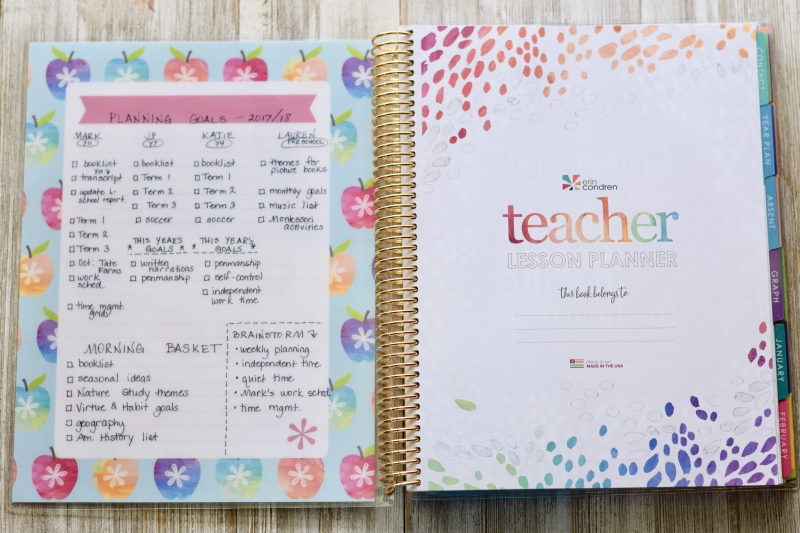 PLANNING GOALS - 2017/18
MARK
Y11
booklist
Y11 →
transcript
update h-
school report.
Term 1
Term 2
Term 3
Oct: Tate
Farms
work
sched.
time mgmt.
grids
JP
Y7
booklist
Term 1
Term 2
Term 3
soccer
THIS YEAR'S
* GOALS *
written
narrations
penmanship
KATIE
Y4
booklist
Term 1
Term 2
Term 3
soccer
THIS YEAR'S
GOALS *
penmanship
self-control
independent
work time
LAUREN
PRESCHOOL
themes for
picture books
monthly goals
music list
Montessori
activities
MORNING BASKET
booklist
seasonal ideas
Nature Study themes
Virtue & Habit goals
geography
Am. History list
BRAINSTORM
• weekly planning
• independent time
• quiet time
• Mark's work sched.
• time mgmt.
erin
condren
teacher
LESSON PLANNER
this book belongs to
MADE IN THE USA
CONTACT
YEAR PLAN
ABSENT
GRAPH
JANUARY
FEBRUARY